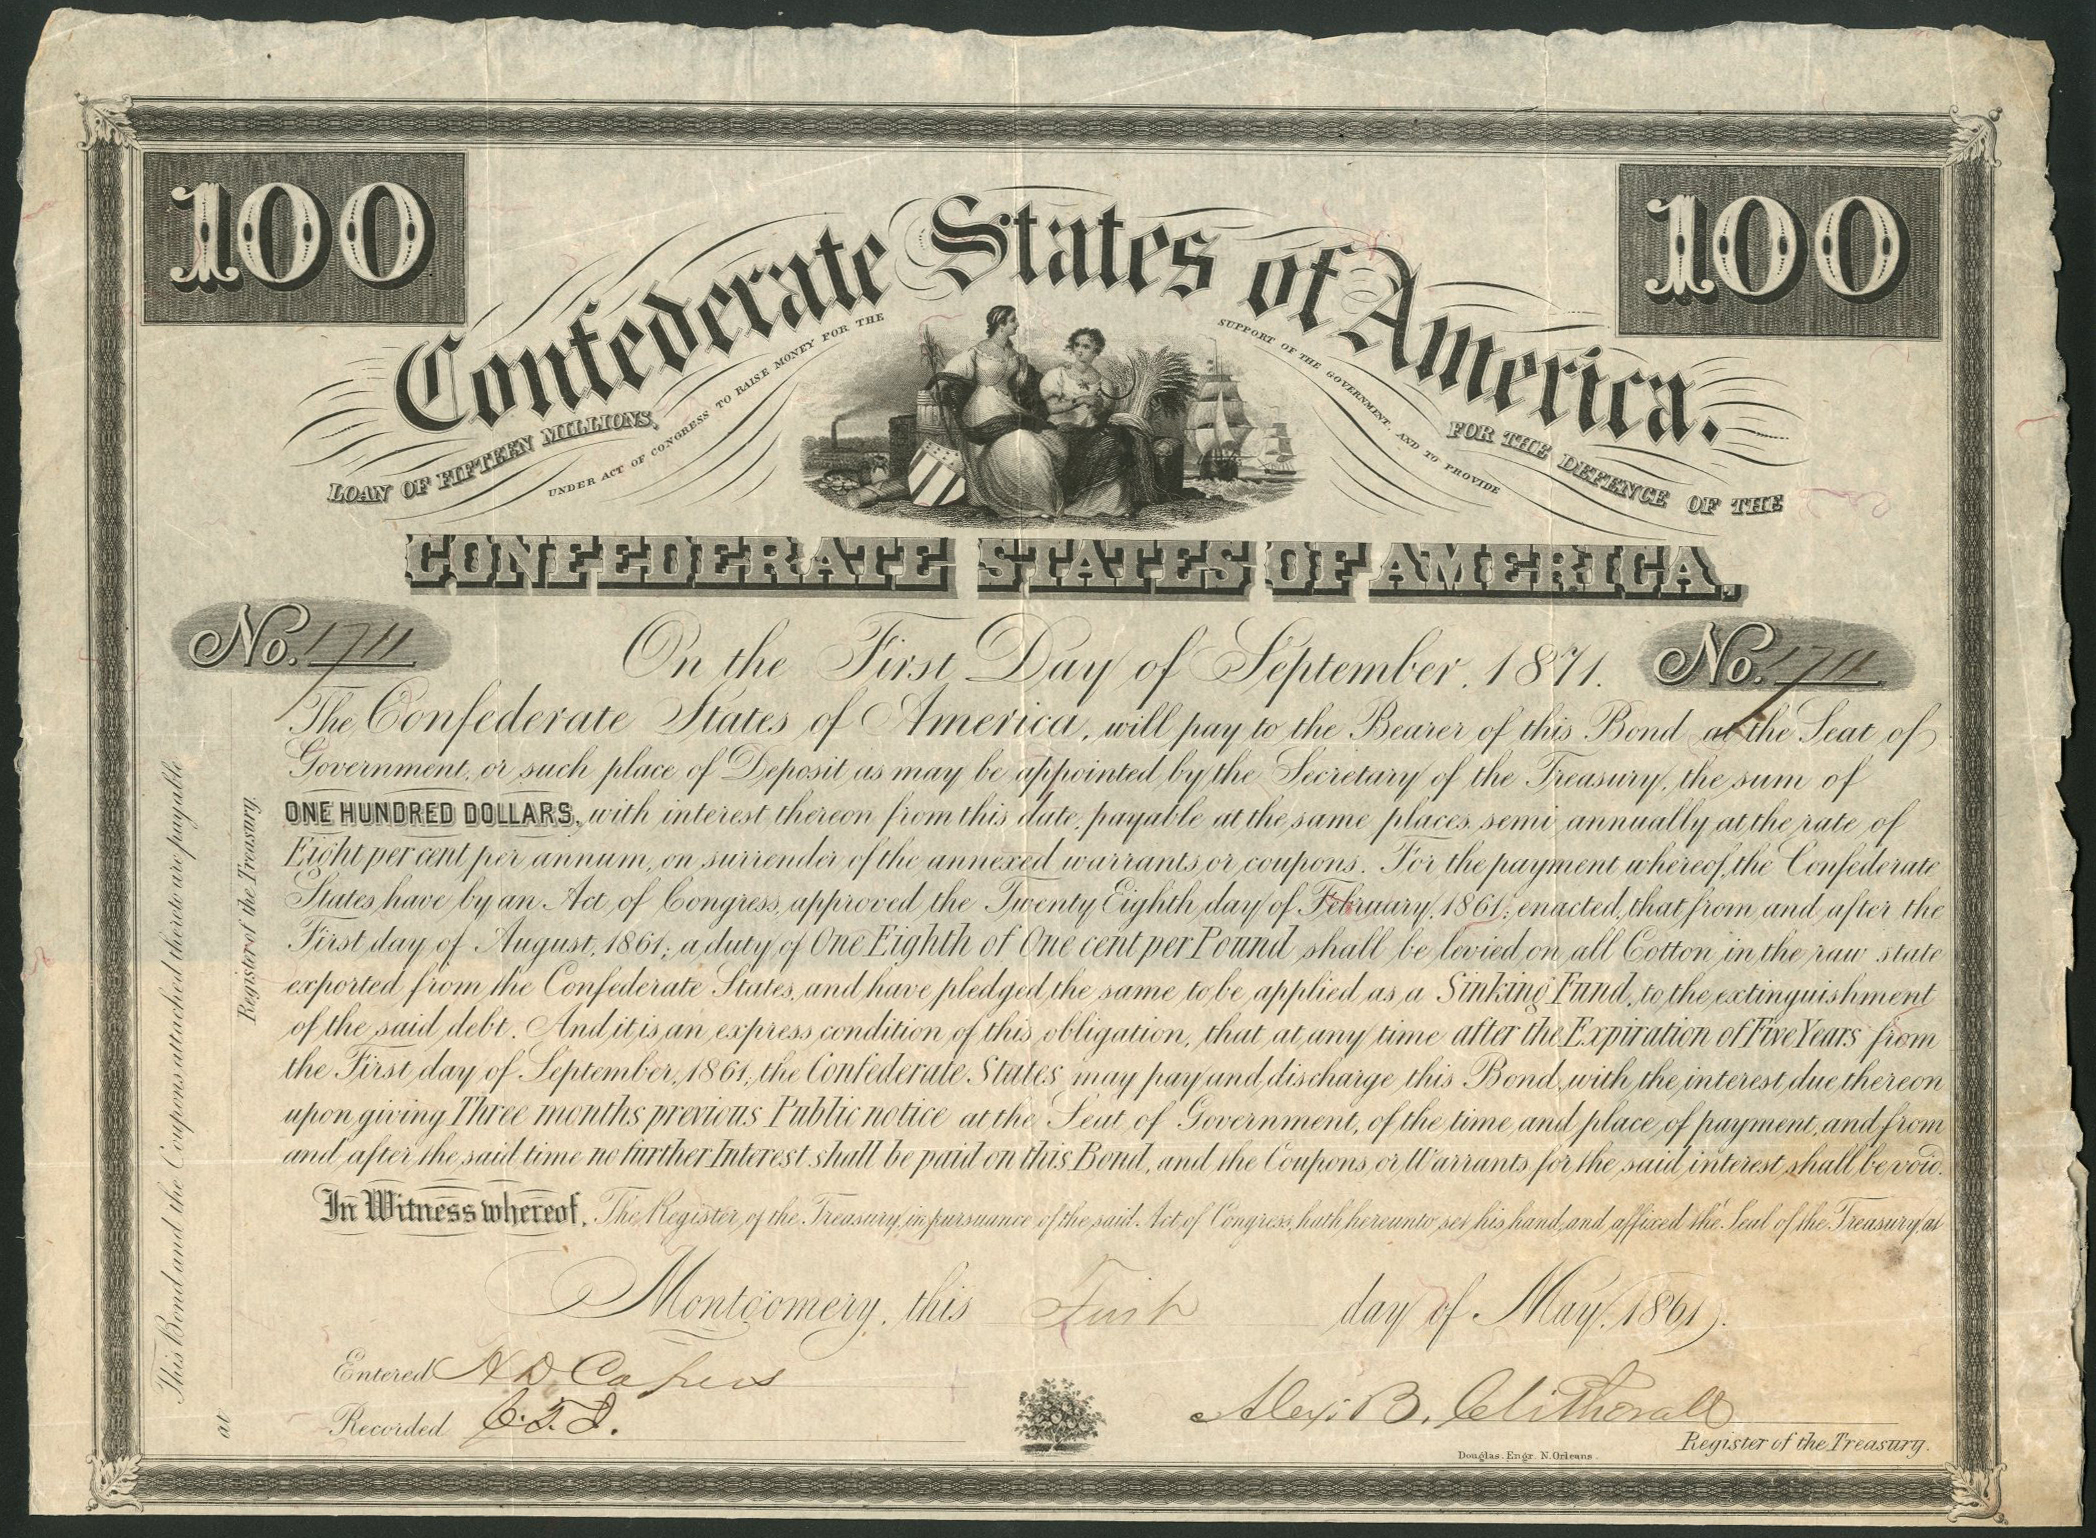 100
100
Confederate States of America.
LOAN OF FIFTEEN MILLIONS,
UNDER ACT OF CONGRESS TO RAISE MONEY FOR THE
SUPPORT OF THE GOVERNMENT, AND TO PROVIDE
FOR THE DEFENCE OF THE
CONFEDERATE STATES OF AMERICA.
No. 1711
On the First Day of September, 1871.
No. 1711
The Confederate States of America, will pay to the Bearer of this Bond at the Seat of
Government, or such place of Deposit as may be appointed by the Secretary of the Treasury, the sum of
ONE HUNDRED DOLLARS, with interest thereon from this date, payable at the same places, semi annually at the rate of
Eight per cent per annum, on surrender of the annexed warrants or coupons. For the payment whereof, the Confederate
States, have by an Act, of Congress, approved the Twenty Eighth day of February, 1861; enacted, that from and after the
First day of August, 1861; a duty of One Eighth of One cent per Pound shall be levied on all Cotton in the raw state
exported from the Confederate States, and have pledged the same to be applied as a Sinking Fund, to the extinguishment
of the said debt. And it is an express condition of this obligation, that at any time after the Expiration of Five Years from
the First day of September, 1861, the Confederate States may pay and discharge this Bond, with the interest due thereon
upon giving Three months previous Public notice at the Seat of Government, of the time and place of payment, and from
and after the said time no further Interest shall be paid on this Bond, and the Coupons, or Warrants for the said interest shall be void.
In Witness whereof, The Register, of the Treasury, in pursuance of the said Act, of Congress, hath hereunto set his hand, and affixed the Seal of the Treasury, at
Montgomery, this First day of May, 1861.
Entered H D Capers
Recorded C. T. J.
Alex: B. Clitherall
Register of the Treasury.
Douglas. Engr. N. Orleans.
This Bond and the Coupons attached thereto are payable
at
Register of the Treasury.